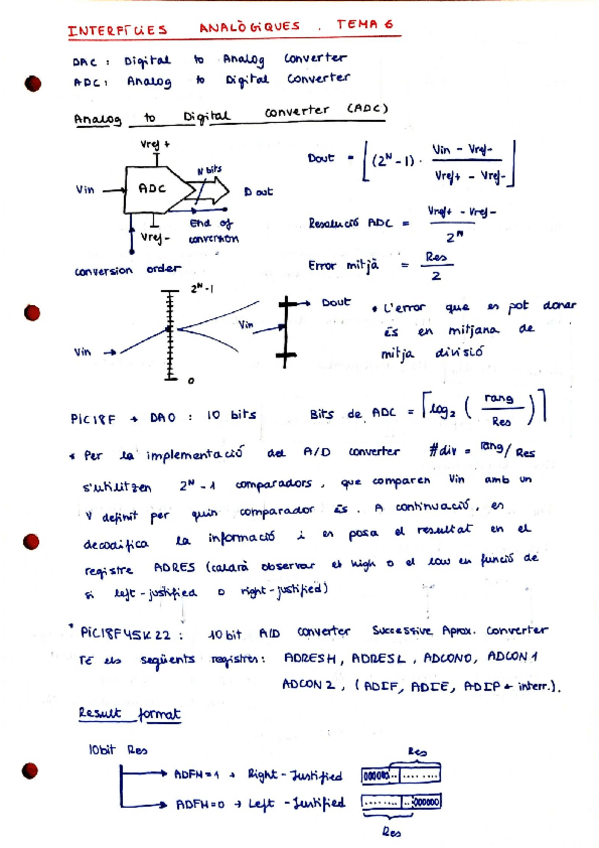 INTERFÍCIES ANALÒGIQUES. TEMA 6
DAC: Digital to Analog Converter
ADC: Analog to Digital Converter
Analog to Digital Converter (ADC)
Vref+
Vin
ADC
N bits
Dout
Vref-
End of conversion
conversion order
Dout = ⌊(2^N-1) · (Vin - Vref-) / (Vref+ - Vref-)⌋
Resolució ADC = (Vref+ - Vref-) / 2^N
Error mitjà = Res / 2
2^N-1
Vin
0
Vin
Dout
* L'error que es pot donar
és en mitjana de
mitja divisió
PIC18F → DAO : 10 bits
Bits de ADC = ⌈log2 (rang / Res)⌉
* Per la implementació del A/D converter #div = rang/Res
s'utilitzen 2^N-1 comparadors, que comparen Vin amb un
V definit per quin comparador és. A continuació, es
decodifica la informació i es posa el resultat en el
registre ADRES (caldrà observar el high o el low en funció de
si left-justified o right-justified)
* PIC18F45K22: 10bit A/D converter Successive Aprox. Converter
TÉ els següents registres: ADRESH, ADRESL, ADCON0, ADCON1
ADCON2, (ADIF, ADIE, ADIP ← interr.).
Result format
10bit Res
Res
→ ADFM=1 → Right-Justified 000000.. ........
→ ADFM=0 → Left-Justified ........ ..000000
Res